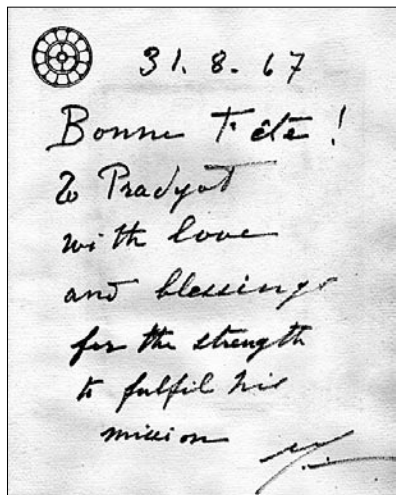 31.8.67
Bonne Fête!
to Pradyot
with love
and blessings
for the strength
to fulfil his
mission